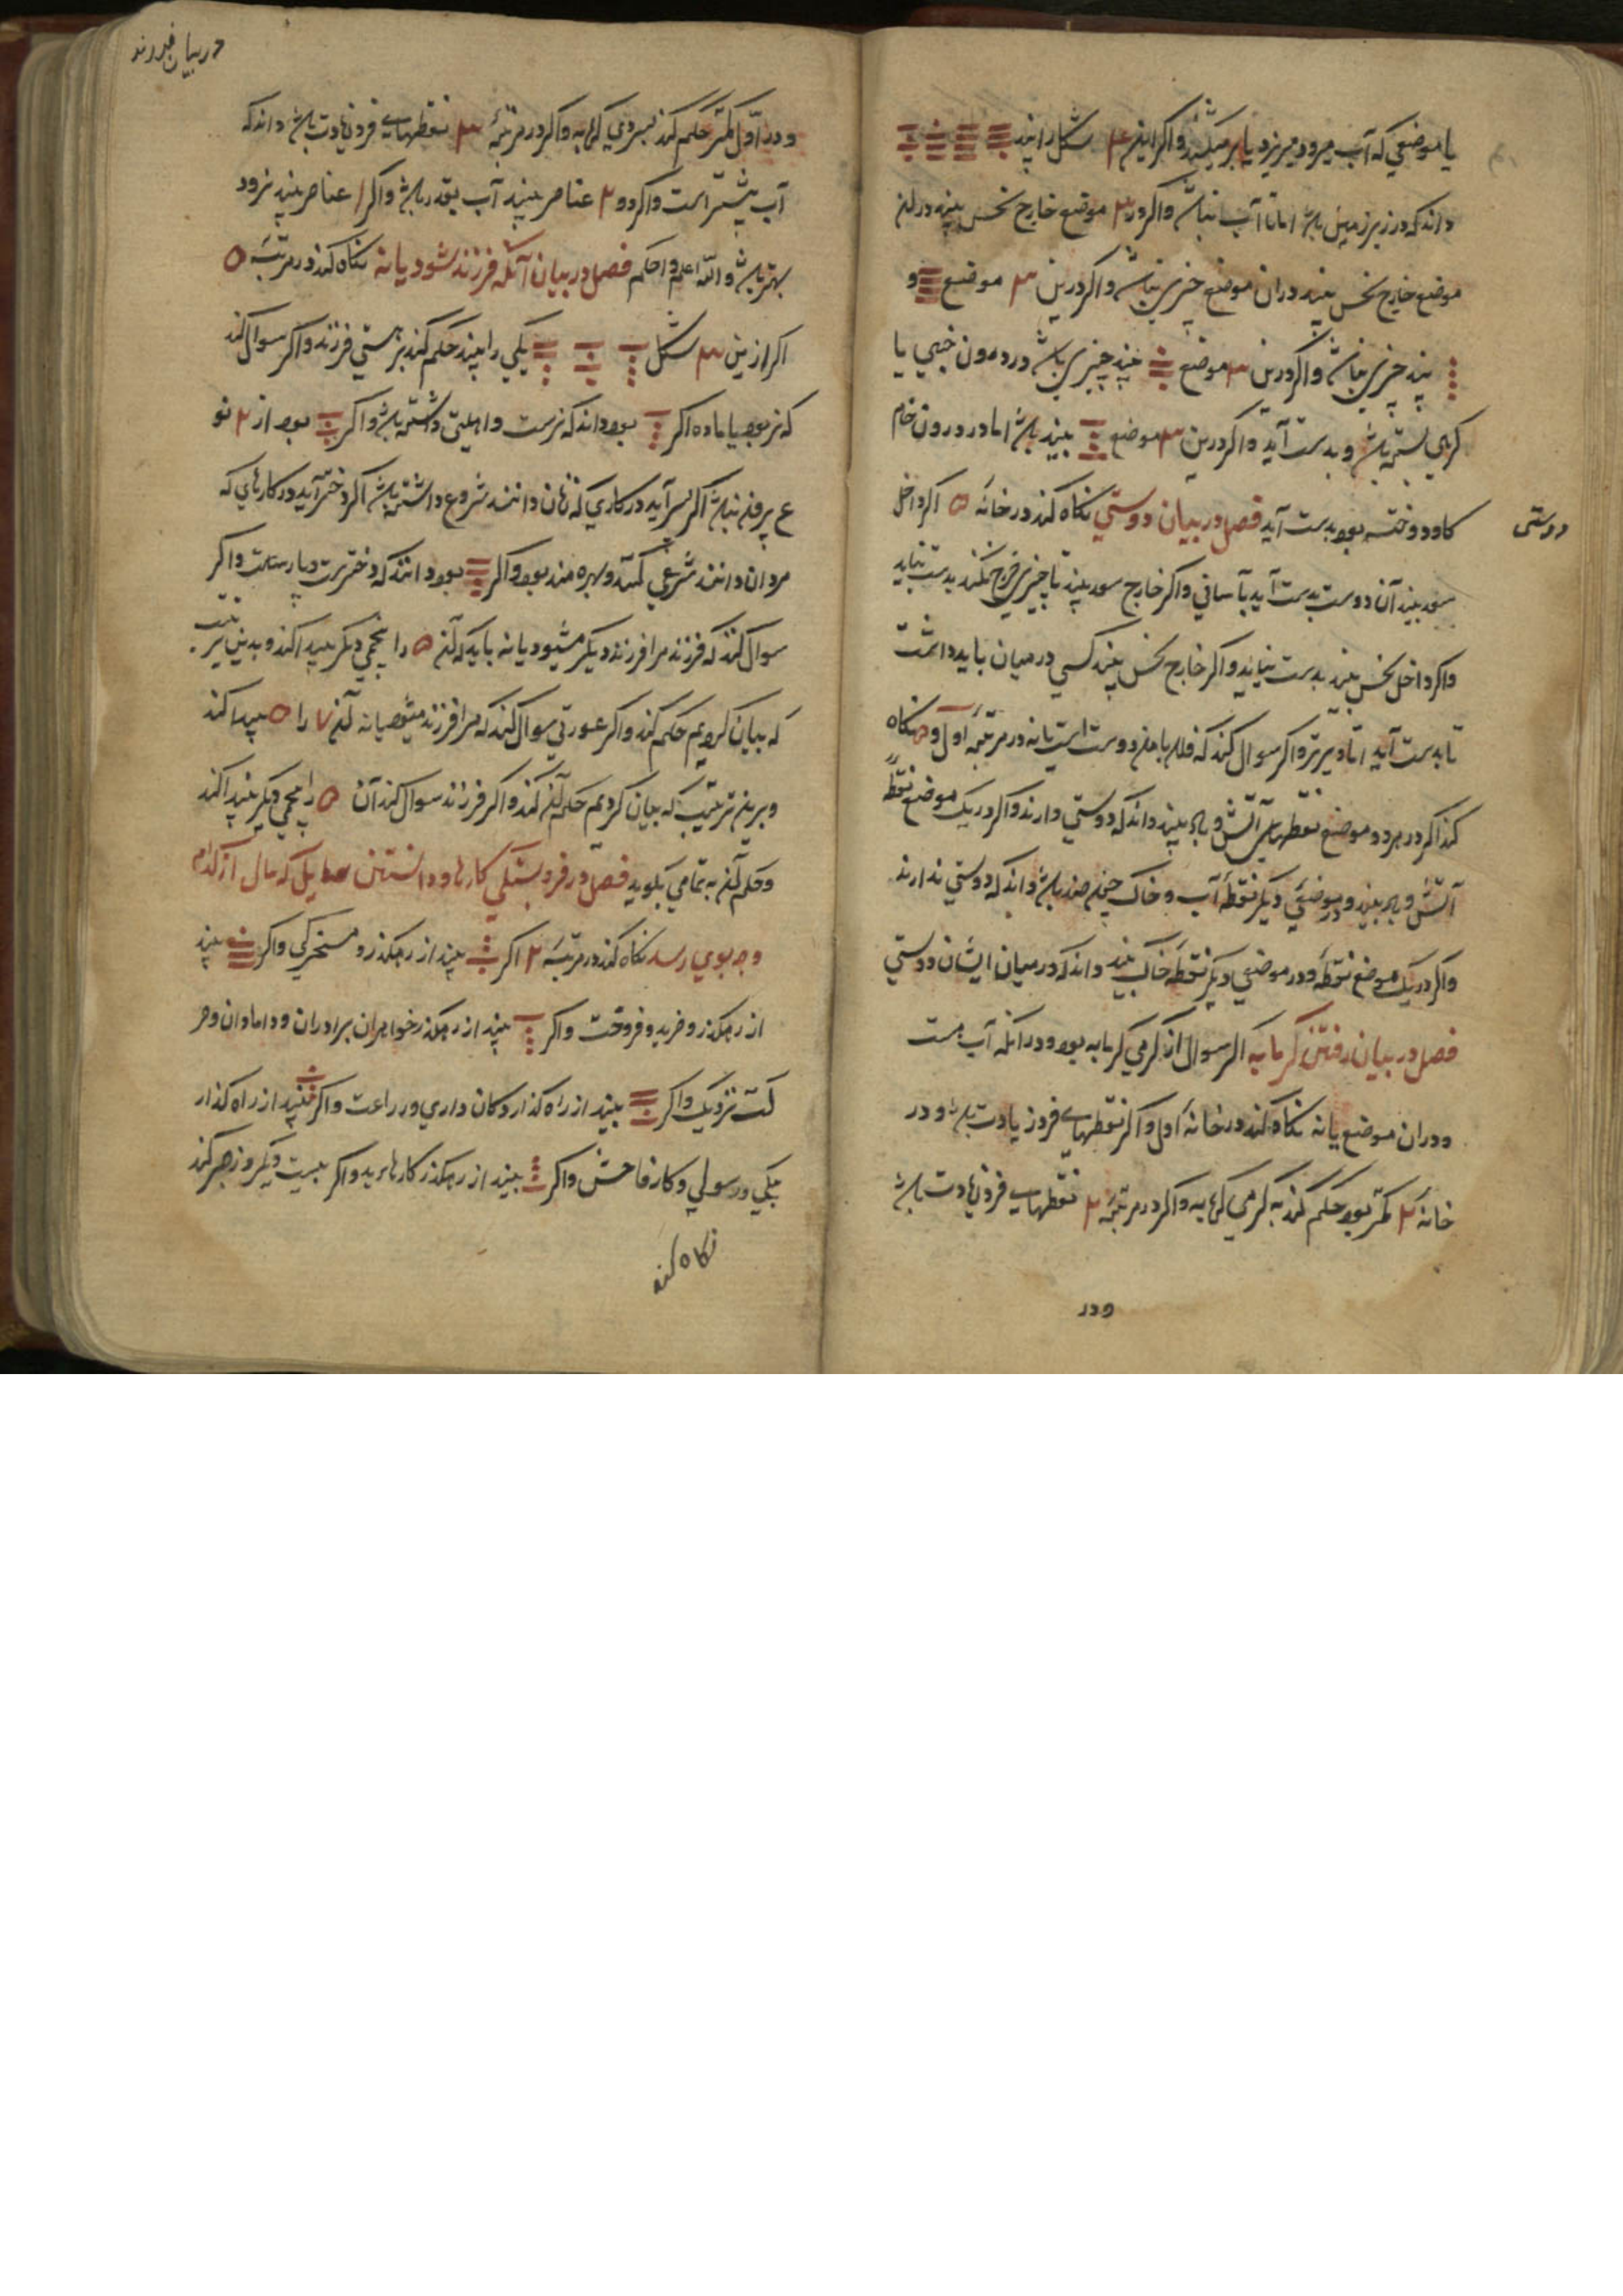 یا موضعی که آب میرود میریزد یا بر میکشد واکر این ۴ شکل را بیند
داند که در زیر زمین باشد اما تا آب نباشد واکر در ۳ موضع خارج نحس بیند در این
موضع خارج نحس بیند دران موضع چیزی نباشد واکر درین ۳ موضع و
بیند چیزی نباشد واکر درین ۳ موضع بیند چیزی باشد و در درون خبی یا
بسته باشد و بدست آید واکر درین ۳ موضع بیند باشد اما در درون خام
کاو دوخته بود بدست آید فصل در بیان دوستی نکاه کند در خانهٔ ۵ اکر داخل
دوستی
سعد بیند آن دوست بدست آید بآسانی واکر خارج سعد بیند تا چیزی خرج نکند بدست نیاید
واکر داخل نحس بیند بدست نیاید واکر خارج نحس بیند کسی در میان باید داشت
تا بدست آید اما دیرتر واکر سوال کند که فلان با من دوست است یا نه در مرتبهٔ اول و ۵ نکاه
کند اکر در هر دو موضع نقطهای آتش و باد بیند داند که دوستی دارند واکر در یک موضع نقطهٔ
آتش و باد بیند و در موضعی دیکر نقطهٔ آب و خاک باشد داند که دوستی ندارند
واکر در یک موضع نقطه و در موضعی دیکر نقطه خاک بیند داند که در میان ایشان دوستی
فصل در بیان رفتن کرمابه اکر سوال از کرمی کرمابه بود و در آنکه آب هست
و دران موضع یا نه نکاه کند در خانهٔ اول واکر نقطهای فرد زیادت باشد و در
خانهٔ ۲ کمتر بود حکم کند به کرمی کرمابه واکر در مرتبهٔ ۲ نقطهای فرد زیادت باشد
ودر
در بیان فرزند
و در اول کمتر حکم کند بسردی کرمابه واکر در مرتبهٔ ۳ نقطهای فرد زیادت باشد داند که
آب بیشتر است واکر دو ۲ عناصر بیند آب بقدر باشد واکر ۱ عناصر بیند نرود
بهتر باشد والله اعلم واحکم فصل در بیان آنکه فرزند شود یا نه نکاه کند در مرتبهٔ ۵
اکر ازین ۳ شکل یکی را بیند حکم کند بر هستی فرزند واکر سوال کند
که نر بود یا ماده اکر بود داند که نرست و اهلیتی داشته باشد واکر بود از ۲ نو
ع بیرون نباشد اکر پسر آید در کاری که زنان دانند شروع داشته باشد اکر دختر آید در کارهای که
مردان دانند شروع کند و بهره مند بود واکر بود دانند که دخترست و پارساست واکر
سوال کند که فرزند مرا فرزند دیکر میشود یا نه باید که آن ۵ را پنجمی دیکر پیدا کند و بدین ترتیب
که بیان کردیم حکم کند واکر عورتی سوال کند که مرا فرزند میشود یا نه آن ۷ را ۵ پیدا کند
و برین ترتیب که بیان کردیم حکم آن کند واکر فرزند سوال کند آن ۵ را پنجمی دیکر پیدا کند
و حکم آن به تمامی بکوید فصل در فروبستکی کارها و دانستن سایل که مال از کدام
وجه بوی رسد نکاه کند در مرتبهٔ ۲ اکر بیند از رهکذر و مسخرکی واکر بیند
از رهکذر و خرید و فروخت واکر بیند از رهکذر خواهران برادران و دامادان و حر
کت نزدیک واکر بیند از راه کذار دکان داری و زراعت واکر بیند از راه کذار
و رسولی و کار فاحش واکر بیند از رهکذر کارهاء بد واکر دیکر و زجر کند
نکاه کند